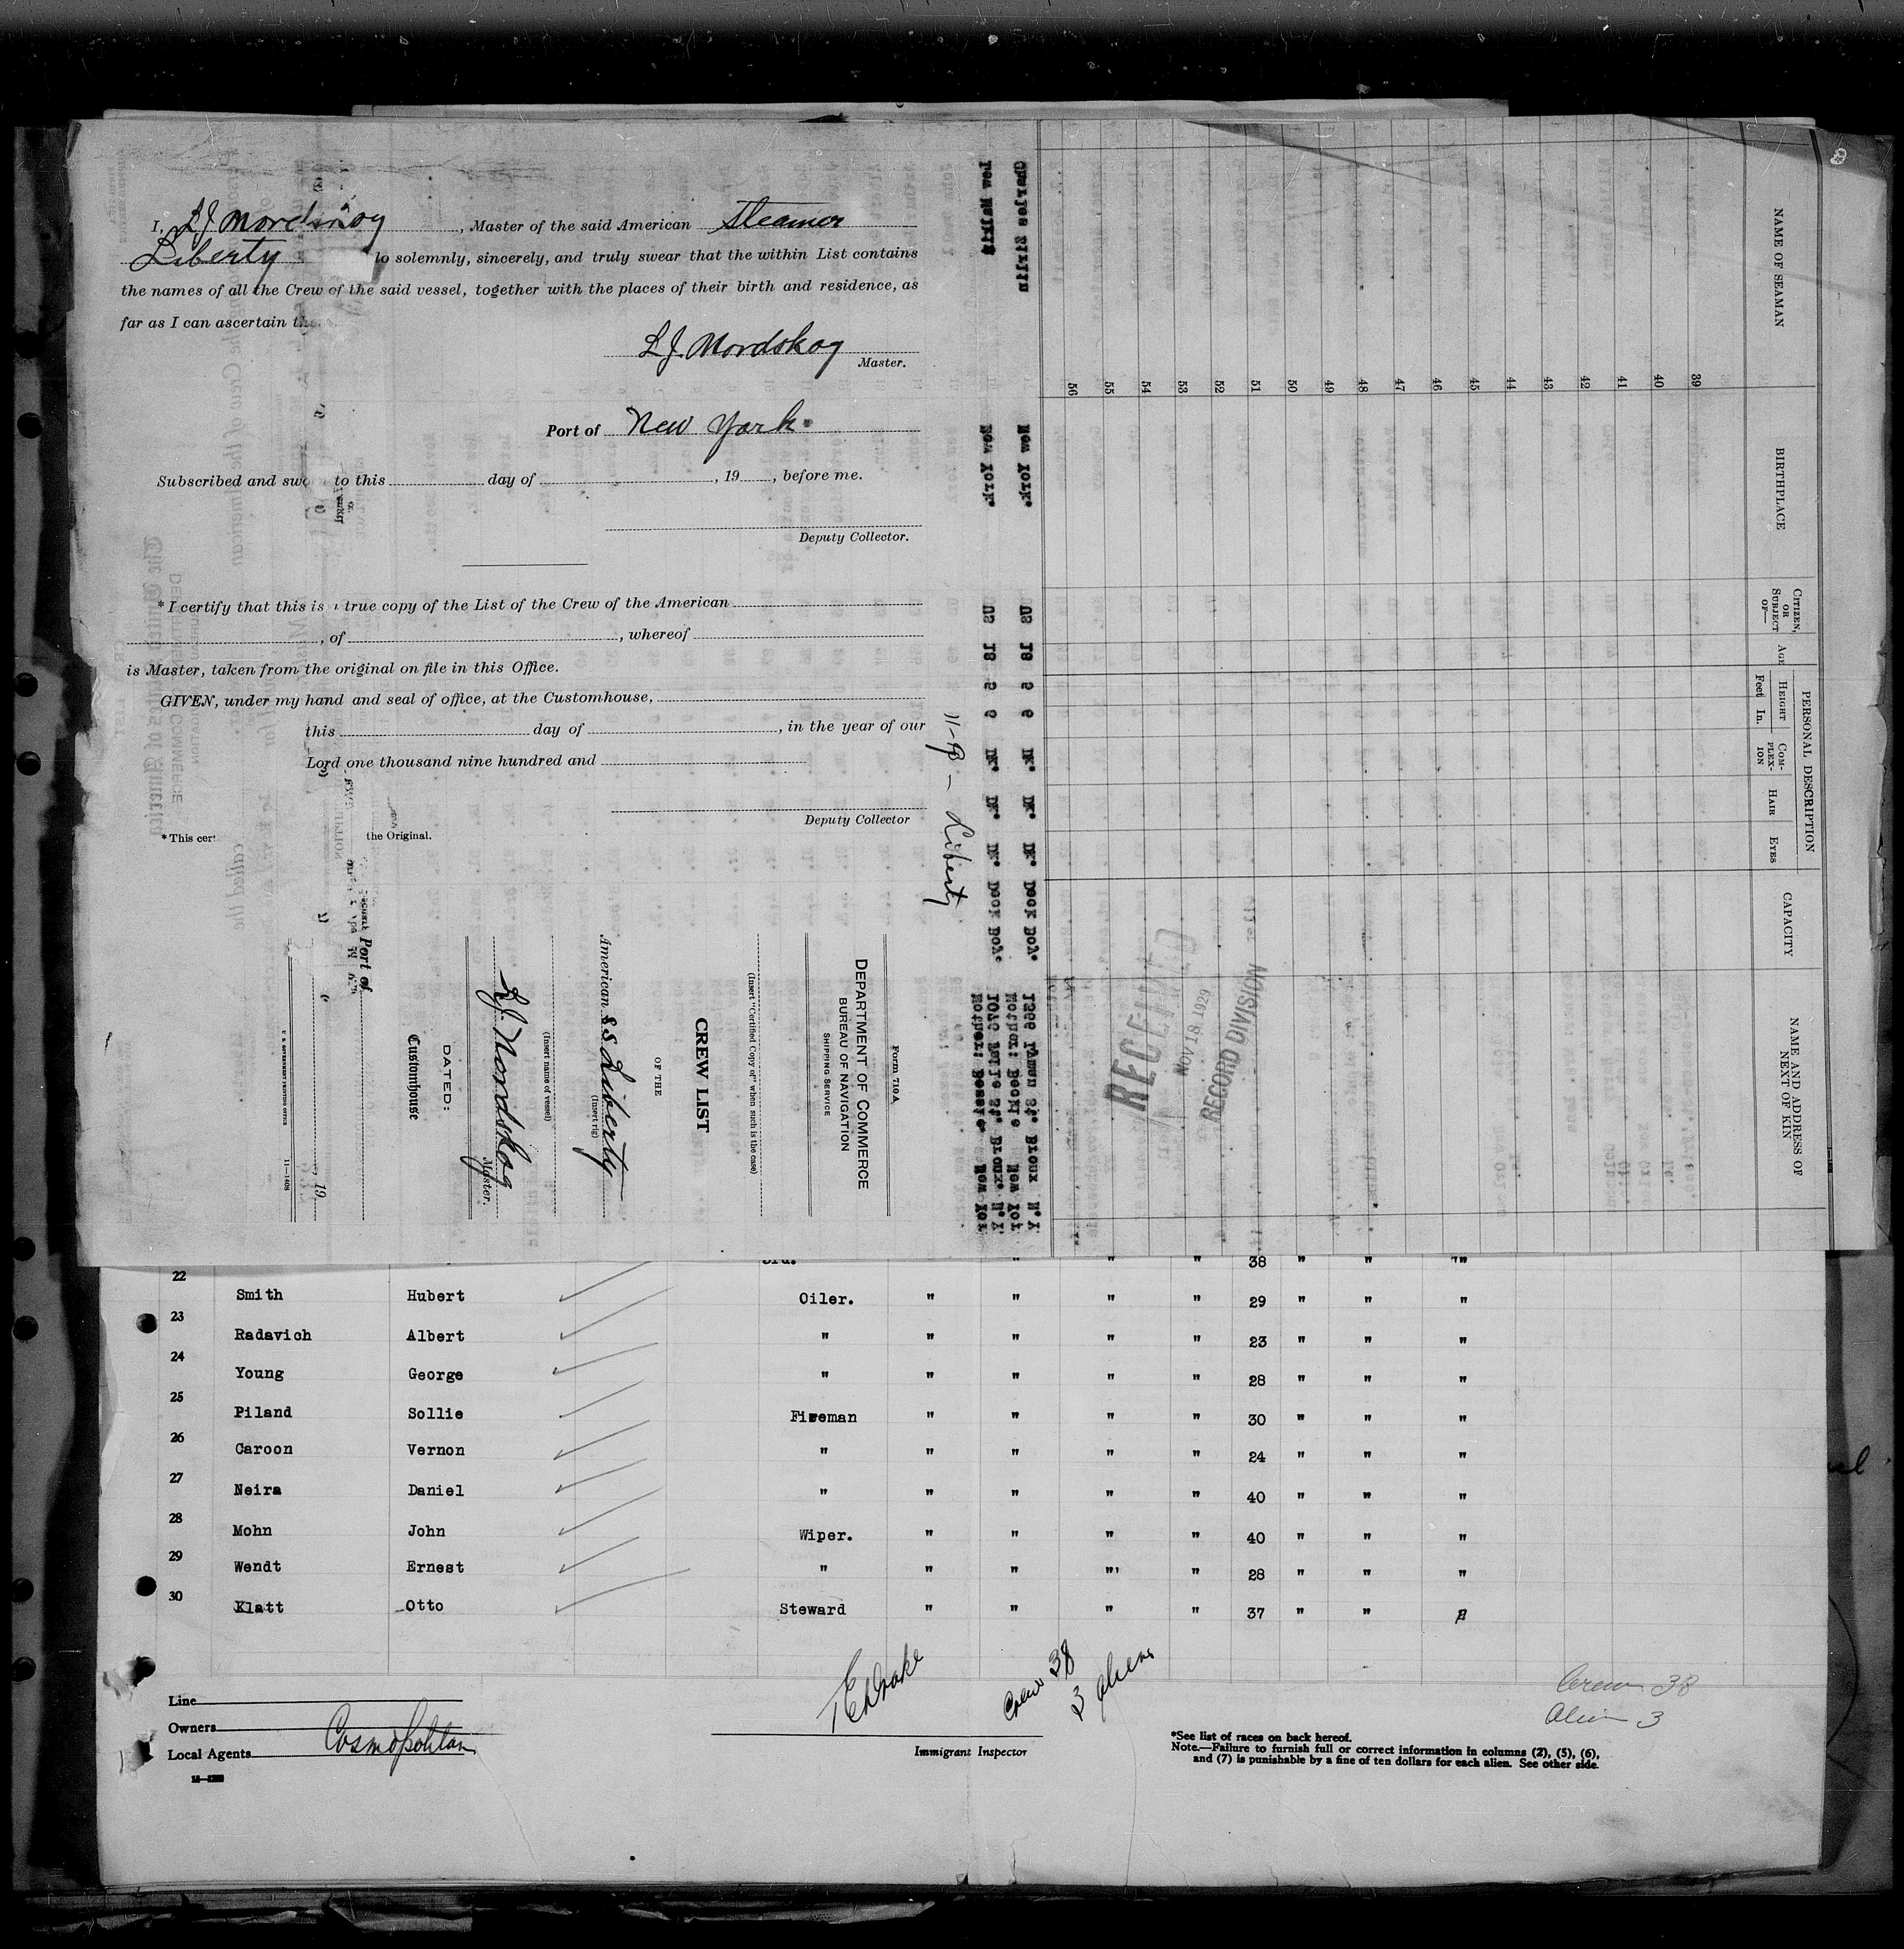 I, L J Nordskog, Master of the said American Steamer
Liberty do solemnly, sincerely, and truly swear that the within List contains
the names of all the Crew of the said vessel, together with the places of their birth and residence, as
far as I can ascertain
L J. Nordskog
Master.
Port of New York
Subscribed and sworn to this day of , 19 , before me.
Deputy Collector.
* I certify that this is true copy of the List of the Crew of the American
, of , whereof
is Master, taken from the original on file in this Office.
GIVEN, under my hand and seal of office, at the Customhouse,
this day of , in the year of our
Lord one thousand nine hundred and
Deputy Collector
* This cert the Original.
11-9 — Liberty
Form 710A
DEPARTMENT OF COMMERCE
BUREAU OF NAVIGATION
SHIPPING SERVICE
(Insert "Certified Copy of" when such is the case)
CREW LIST
OF THE
American S.S. Liberty
(Insert rig)
(Insert name of vessel)
L.J. Nordskog
Master.
DATED:
Customhouse
Port of
, 19
U. S. GOVERNMENT PRINTING OFFICE 11—1408
NAME OF SEAMAN
BIRTHPLACE
CITIZEN, OR SUBJECT OF—
AGE
PERSONAL DESCRIPTION
HEIGHT
Feet In.
COMPLEXION
HAIR
EYES
CAPACITY
NAME AND ADDRESS OF NEXT OF KIN
39
40
41
42
43
44
45
46
47
48
49
50
51
52
53
54
55
56
New York. US 18 5 6 Dk. Dk. Dk. Deck Boy.
New York. US 18 5 6 Dk. Dk. Dk. Deck Boy.
RECEIVED
NOV 18 1929
RECORD DIVISION
3rd. " " " 38 " " "
22 Smith Hubert Oiler. " " " " 29 " " "
23 Radavich Albert " " " " " 23 " " "
24 Young George " " " " " 28 " " "
25 Piland Sollie Fireman " " " " 30 " " "
26 Caroon Vernon " " " " " 24 " " "
27 Neira Daniel " " " " " 40 " " "
28 Mohn John Wiper. " " " " 40 " " "
29 Wendt Ernest " " " " " 28 " " "
30 Klatt Otto Steward " " " " 37 " " "
Line
Owners
Local Agents Cosmopolitan
Drake
Immigrant Inspector
Crew 38
3 aliens
Crew 38
Alien 3
*See list of races on back hereof.
Note.—Failure to furnish full or correct information in columns (2), (5), (6),
and (7) is punishable by a fine of ten dollars for each alien. See other side.